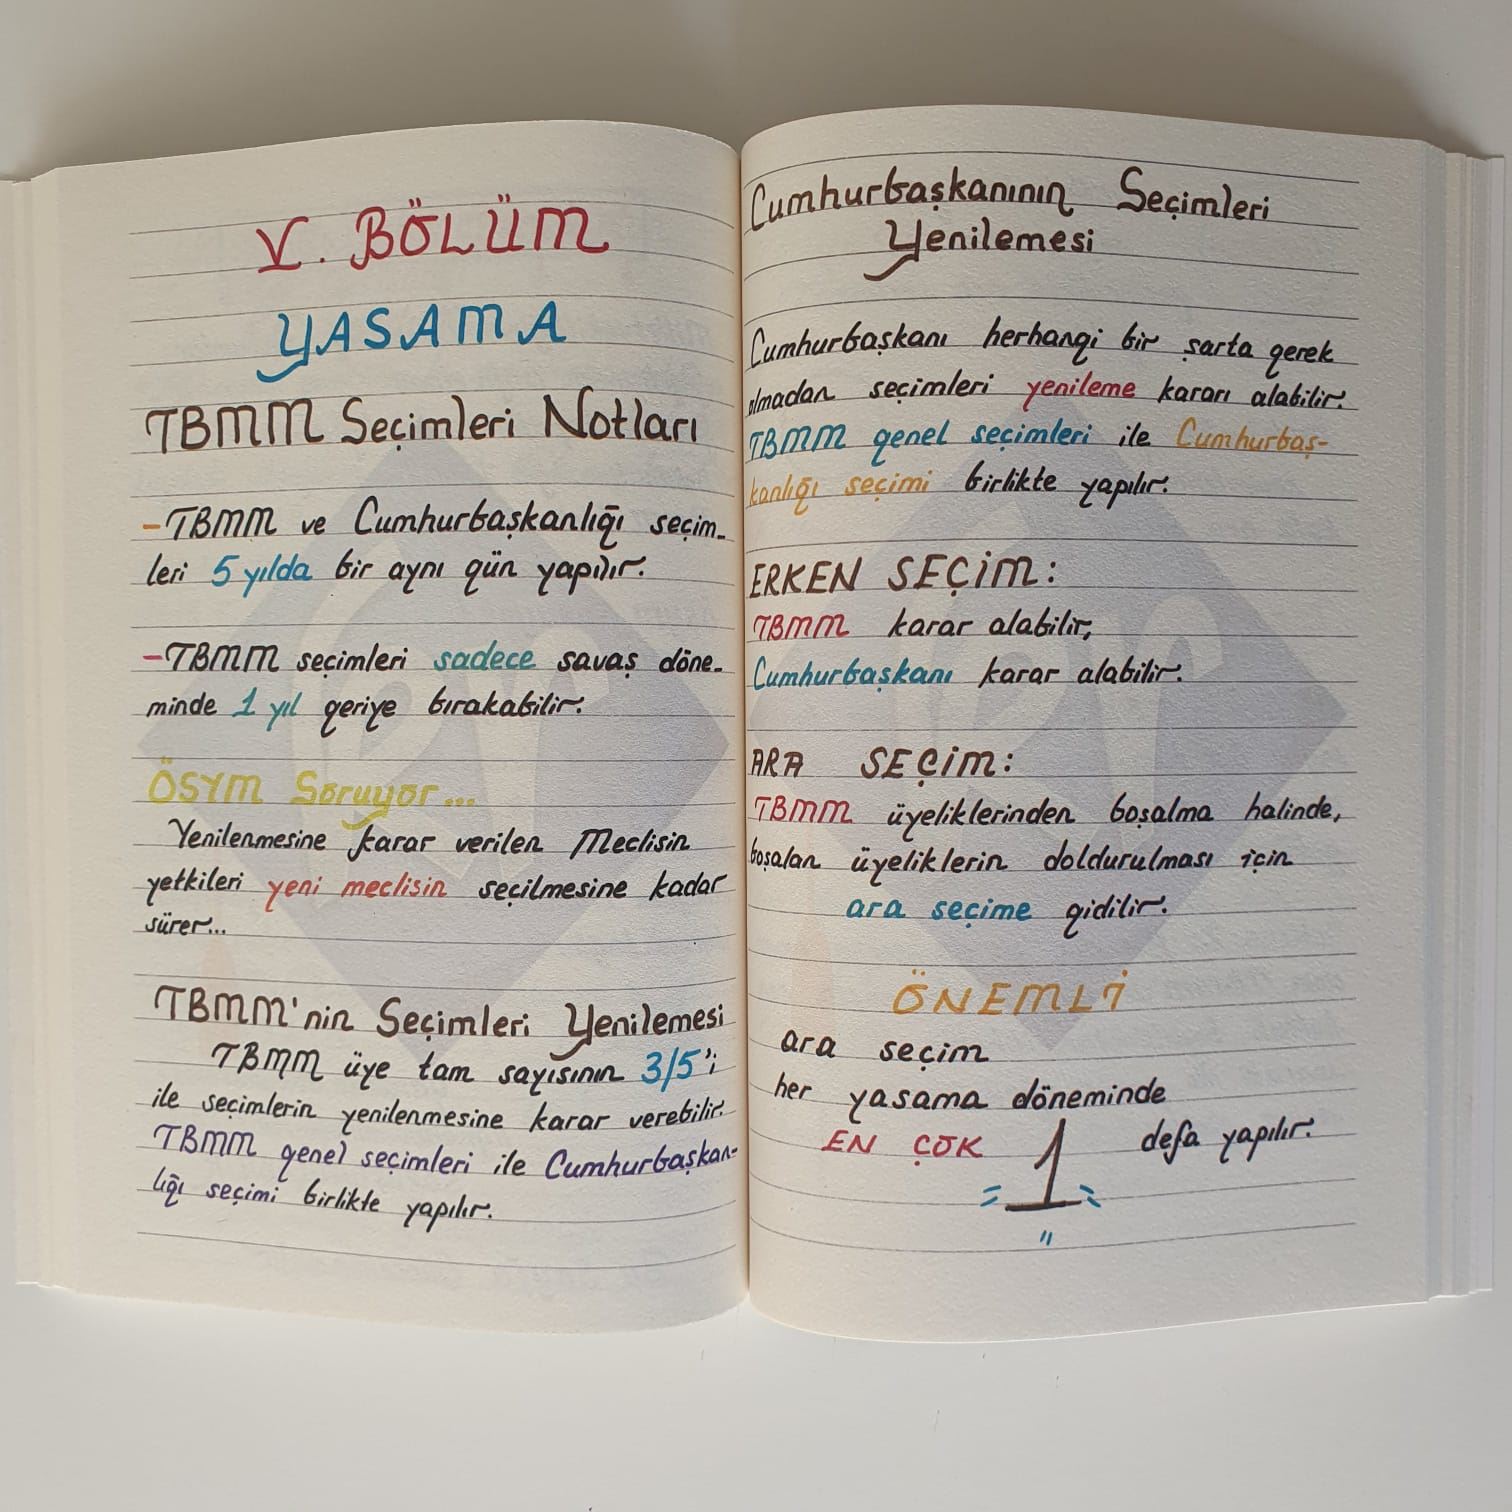 V. BÖLÜM
YASAMA
TBMM Seçimleri Notları
-TBMM ve Cumhurbaşkanlığı seçim-
leri 5 yılda bir aynı gün yapılır.
-TBMM seçimleri sadece savaş döne-
minde 1 yıl geriye bırakabilir.
ÖSYM Soruyor...
Yenilenmesine karar verilen Meclisin
yetkileri yeni meclisin seçilmesine kadar
sürer...
TBMM'nin Seçimleri Yenilemesi
TBMM üye tam sayısının 3/5'i
ile seçimlerin yenilenmesine karar verebilir.
TBMM genel seçimleri ile Cumhurbaşkan-
lığı seçimi birlikte yapılır.
Cumhurbaşkanının Seçimleri
Yenilemesi
Cumhurbaşkanı herhangi bir şarta gerek
olmadan seçimleri yenileme kararı alabilir.
TBMM genel seçimleri ile Cumhurbaş-
kanlığı seçimi birlikte yapılır.
ERKEN SEÇİM:
TBMM karar alabilir,
Cumhurbaşkanı karar alabilir.
ARA SEÇİM:
TBMM üyeliklerinden boşalma halinde,
boşalan üyeliklerin doldurulması için
ara seçime gidilir.
ÖNEMLİ
ara seçim
her yasama döneminde
EN ÇOK 1 defa yapılır.